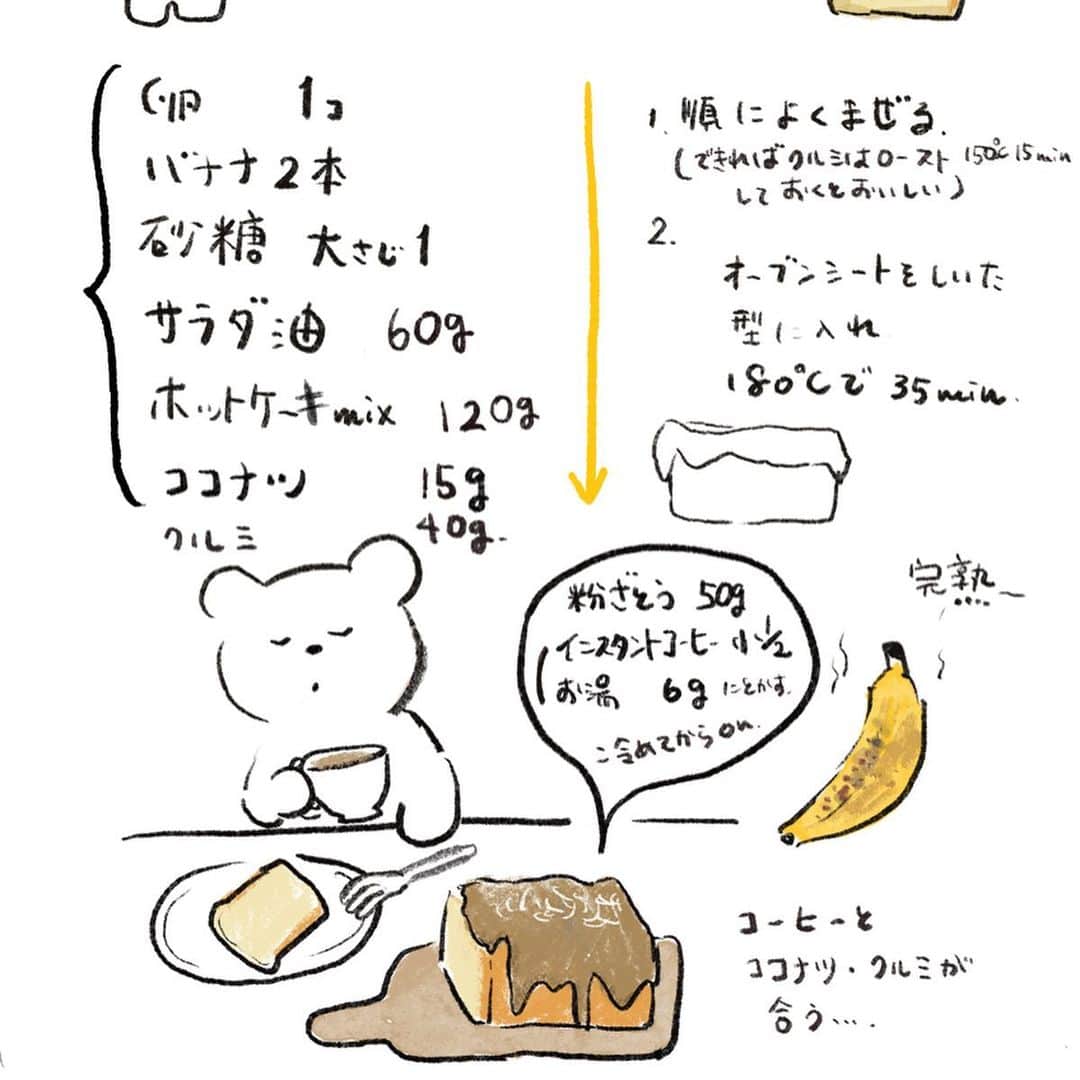 卵 1コ
バナナ 2本
砂糖 大さじ1
サラダ油 60g
ホットケーキmix 120g
ココナツ 15g
クルミ 40g.
1. 順によくまぜる.
(できればクルミはロースト 150℃ 15min
しておくとおいしい)
2.
オーブンシートをしいた
型に入れ
180℃で 35min.
粉ざとう 50g
インスタントコーヒー 小1/2
お湯 6g にとかす.
冷めてからon.
完熟〜
コーヒーと
ココナツ・クルミが
合う….